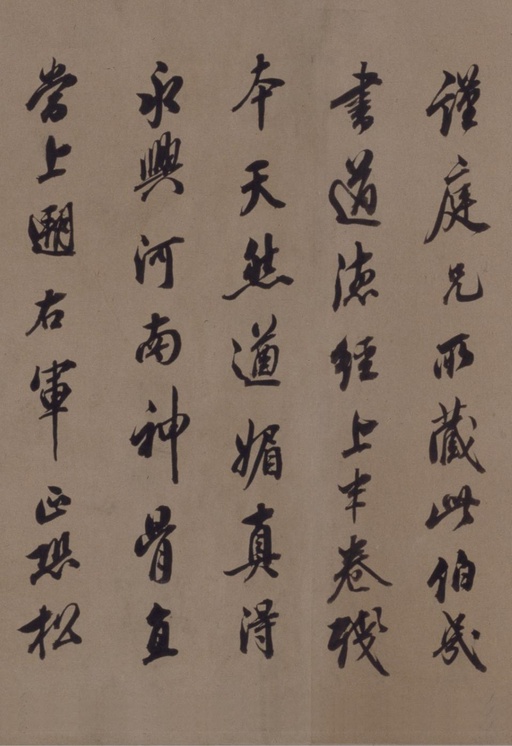 謹庭兄所藏此伯幾
書道德經上半卷殘
本天然遒媚真得
永興河南神骨直
當上闚右軍正恐松